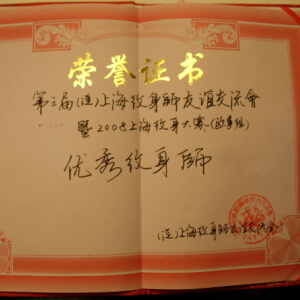 荣誉证书
第三届(连)上海纹身師友谊交流會
暨2008上海纹身大赛(故事组)
优秀纹身師
(连)上海纹身師友谊交流会